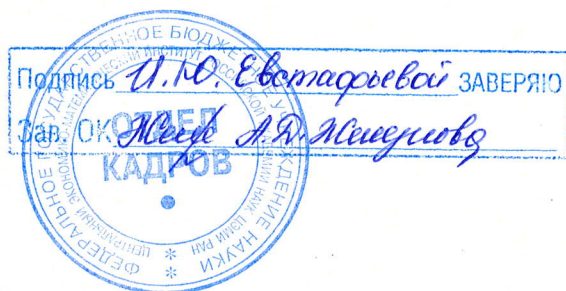 Подпись И.Ю. Евстафьевой ЗАВЕРЯЮ
Зав. ОК
ОТДЕЛ
КАДРОВ
ФЕДЕРАЛЬНОЕ ГОСУДАРСТВЕННОЕ БЮДЖЕТНОЕ УЧРЕЖДЕНИЕ НАУКИ
ЦЕНТРАЛЬНЫЙ ЭКОНОМИКО-МАТЕМАТИЧЕСКИЙ ИНСТИТУТ РОССИЙСКОЙ АКАДЕМИИ НАУК ЦЭМИ РАН